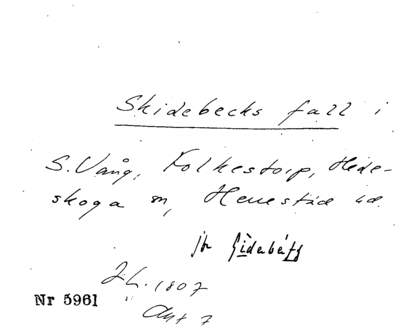 Skidebecks fall i
S. Vång, Folkestorp, Hede-
skoga sn, Herrestad hd.
jfr Gidebäck
J.L. 1807
Akt 7
Nr 5961